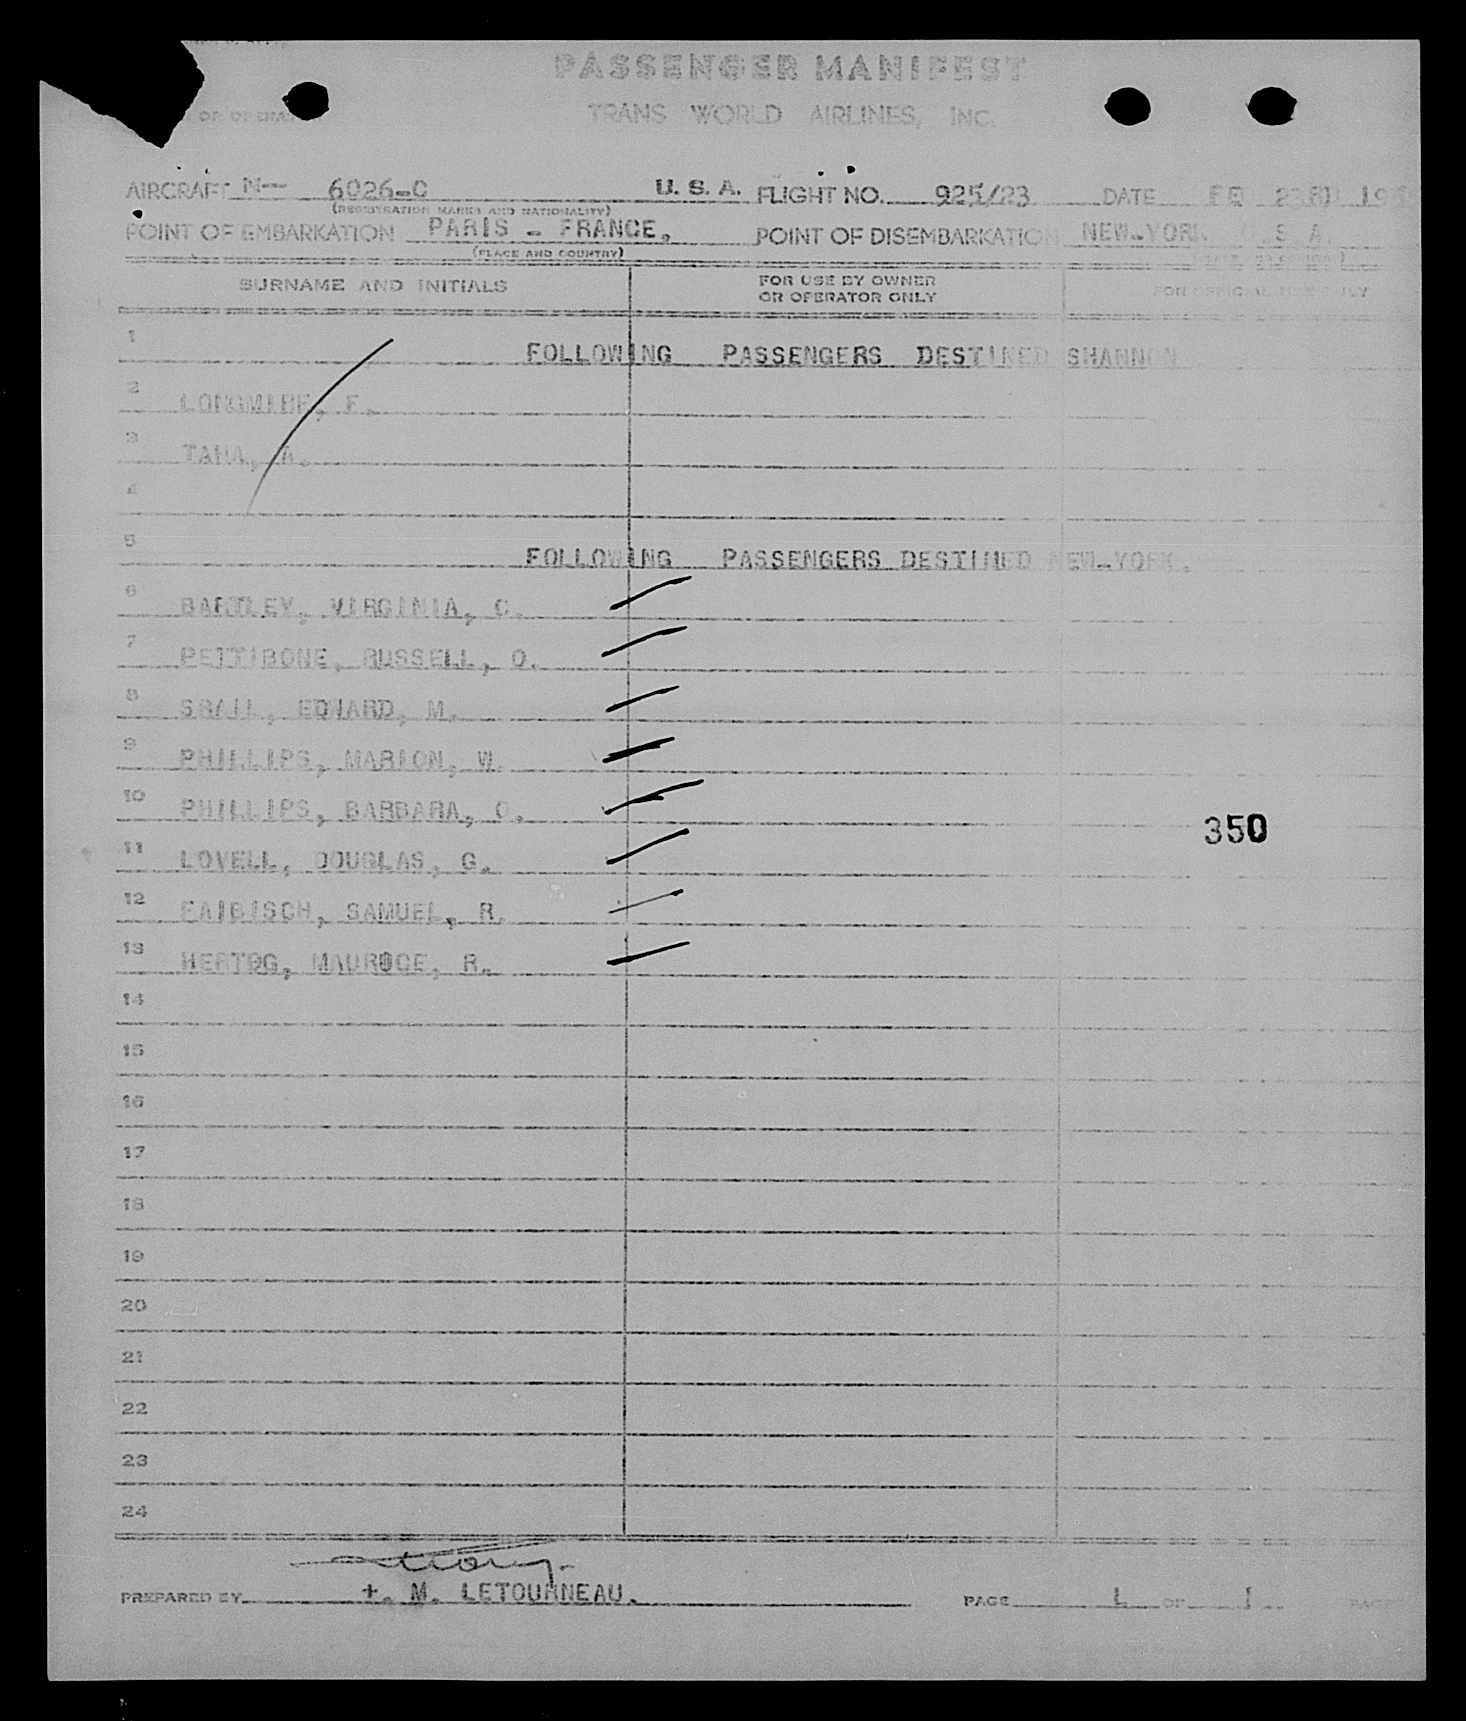 PASSENGER MANIFEST
TRANS WORLD AIRLINES, INC.
AIRCRAFT N-- 6026-C U. S. A. FLIGHT NO. 925/23 DATE 23RD
(REGISTRATION MARKS AND NATIONALITY)
POINT OF EMBARKATION PARIS - FRANCE, POINT OF DISEMBARKATION NEW-YORK U.S.A.
(PLACE AND COUNTRY) (PLACE AND COUNTRY)
SURNAME AND INITIALS FOR USE BY OWNER OR OPERATOR ONLY FOR OFFICIAL USE ONLY
1 FOLLOWING PASSENGERS DESTINED SHANNON
2 LONGMIRE, F.
3 TAHA, A.
4
5 FOLLOWING PASSENGERS DESTINED NEW-YORK.
6 BARTLEY, VIRGINIA, C.
7 PETTIBONE, RUSSELL, O.
8 EDWARD, M.
9 PHILLIPS, MARION, W.
10 PHILLIPS, BARBARA, O.
350
11 LOVELL, DOUGLAS, G.
12 FAIBISCH, SAMUEL, R.
13 HERTOG, R.
14
15
16
17
18
19
20
21
22
23
24
PREPARED BY M. LETOURNEAU. PAGE 1 OF 1 PAGES